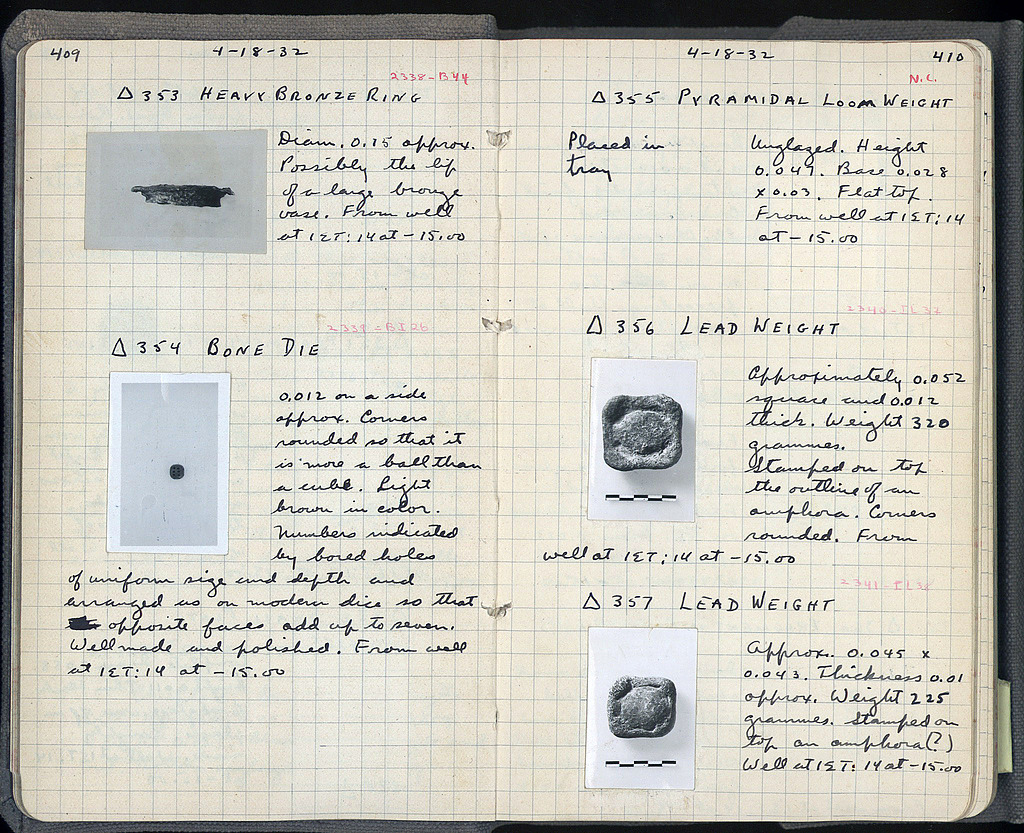 409
4-18-32
2338-B44
Δ 353 HEAVY BRONZE RING
Diam. 0.15 approx.
Possibly the lip
of a large bronze
vase. From well
at 1ΣΤ:14 at -15.00
2339-BI26
Δ 354 BONE DIE
0.012 on a side
approx. Corners
rounded so that it
is more a ball than
a cube. Light
brown in color.
Numbers indicated
by bored holes
of uniform size and depth and
arranged as on modern dice so that
opposite faces add up to seven.
Well made and polished. From well
at 1ΣΤ:14 at -15.00
4-18-32
410
N.C.
Δ 355 PYRAMIDAL LOOM WEIGHT
Placed in
tray
Unglazed. Height
0.049. Base 0.028
x 0.03. Flat top.
From well at 1ΣΤ:14
at -15.00
2340-IL37
Δ 356 LEAD WEIGHT
Approximately 0.052
square and 0.012
thick. Weight 320
grammes.
Stamped on top
the outline of an
amphora. Corners
rounded. From
well at 1ΣΤ:14 at -15.00
2341-IL38
Δ 357 LEAD WEIGHT
Approx. 0.045 x
0.043. Thickness 0.01
approx. Weight 225
grammes. Stamped on
top an amphora(?)
Well at 1ΣΤ:14 at -15.00